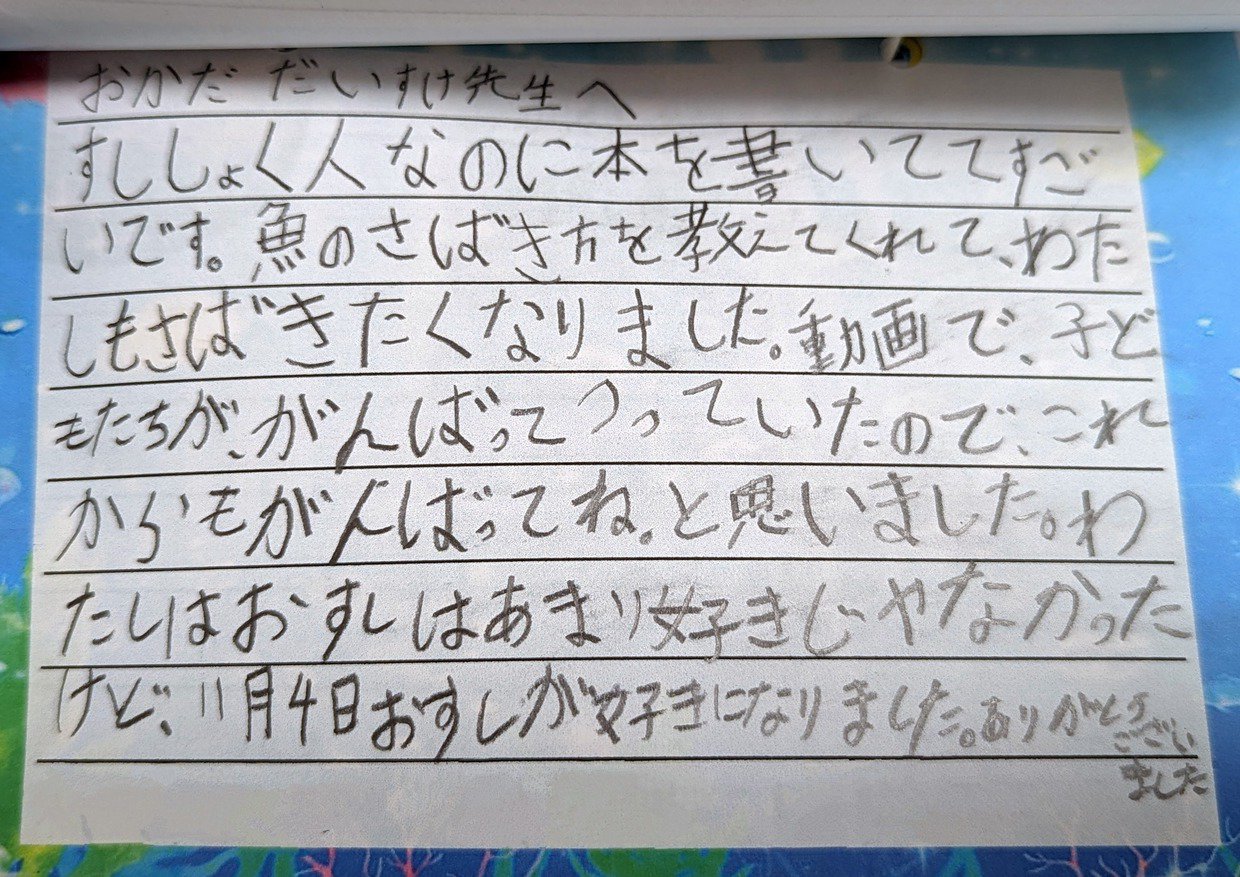 おかだ だいすけ先生へ
すししょく人なのに本を書いててすご
いです。魚のさばき方を教えてくれて、わた
しもさばきたくなりました。動画で、子ど
もたちが、がんばってつっていたので、これ
からもがんばってね。と思いました。わ
たしはおすしはあまり好きじゃなかった
けど、11月4日おすしが好きになりました。ありがとう
ござい
ました